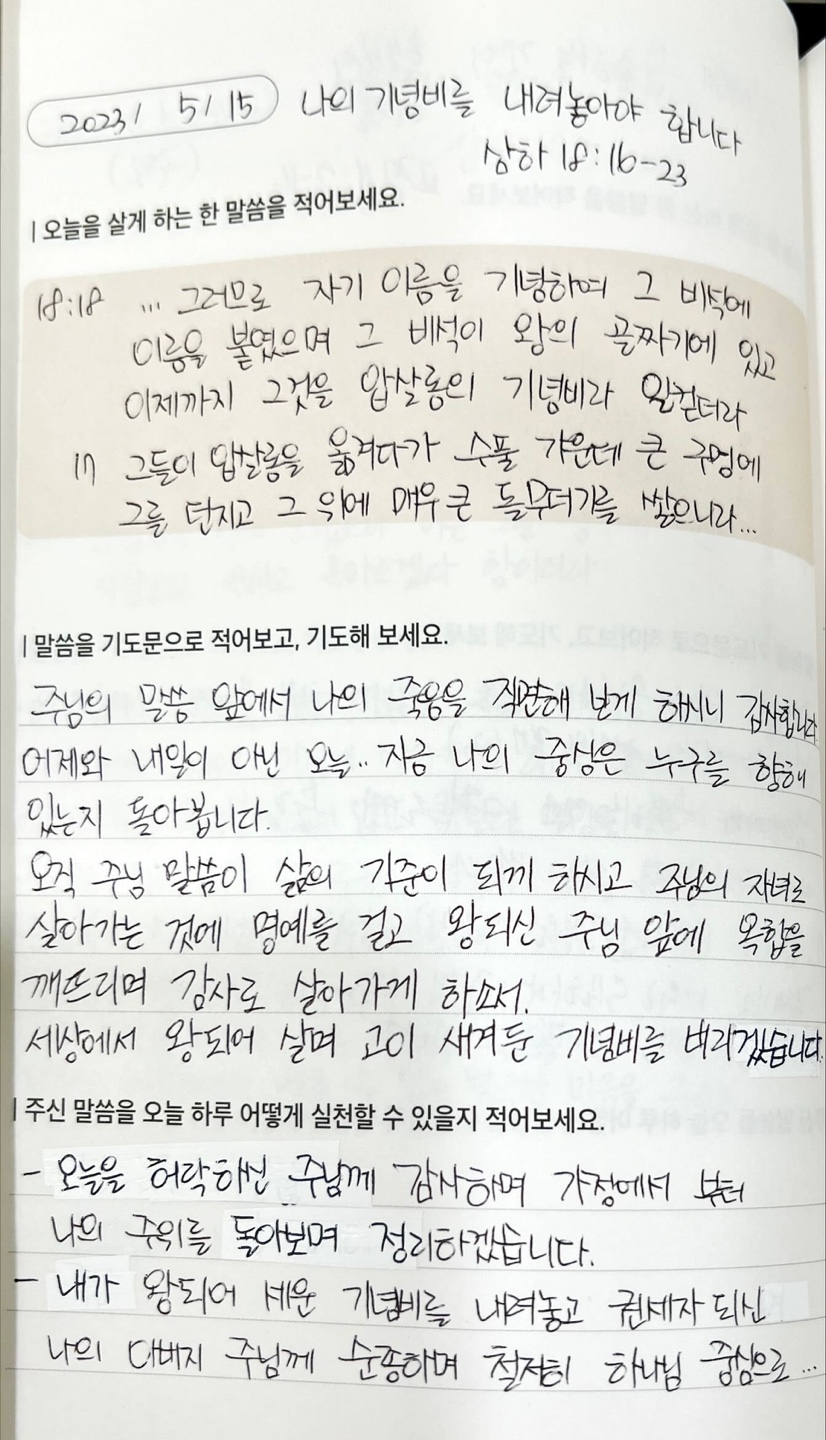 2023 / 5 / 15 나의 기념비를 내려놓아야 합니다
삼하 18:16-23
| 오늘을 살게 하는 한 말씀을 적어보세요.
18:18 ... 그러므로 자기 이름을 기념하여 그 비석에
이름을 붙였으며 그 비석이 왕의 골짜기에 있고
이제까지 그것을 압살롬의 기념비라 일컫더라
17 그들이 압살롬을 옮겨다가 수풀 가운데 큰 구멍에
그를 던지고 그 위에 매우 큰 돌무더기를 쌓으니라...
| 말씀을 기도문으로 적어보고, 기도해 보세요.
주님의 말씀 앞에서 나의 죽음을 직면해 보게 하시니 감사합니다
어제와 내일이 아닌 오늘.. 지금 나의 중심은 누구를 향해
있는지 돌아봅니다.
오직 주님 말씀이 삶의 기준이 되게 하시고 주님의 자녀로
살아가는 것에 명예를 걸고 왕되신 주님 앞에 옥합을
깨뜨리며 감사로 살아가게 하소서.
세상에서 왕되어 살며 고이 새겨둔 기념비를 버리겠습니다.
| 주신 말씀을 오늘 하루 어떻게 실천할 수 있을지 적어보세요.
- 오늘을 허락하신 주님께 감사하며 가정에서 부터
나의 주위를 돌아보며 정리하겠습니다.
- 내가 왕되어 세운 기념비를 내려놓고 권세자 되신
나의 아버지 주님께 순종하며 철저히 하나님 중심으로...